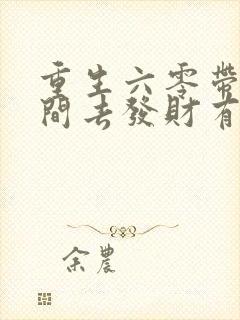 重生六零帶
間去發財有
余農